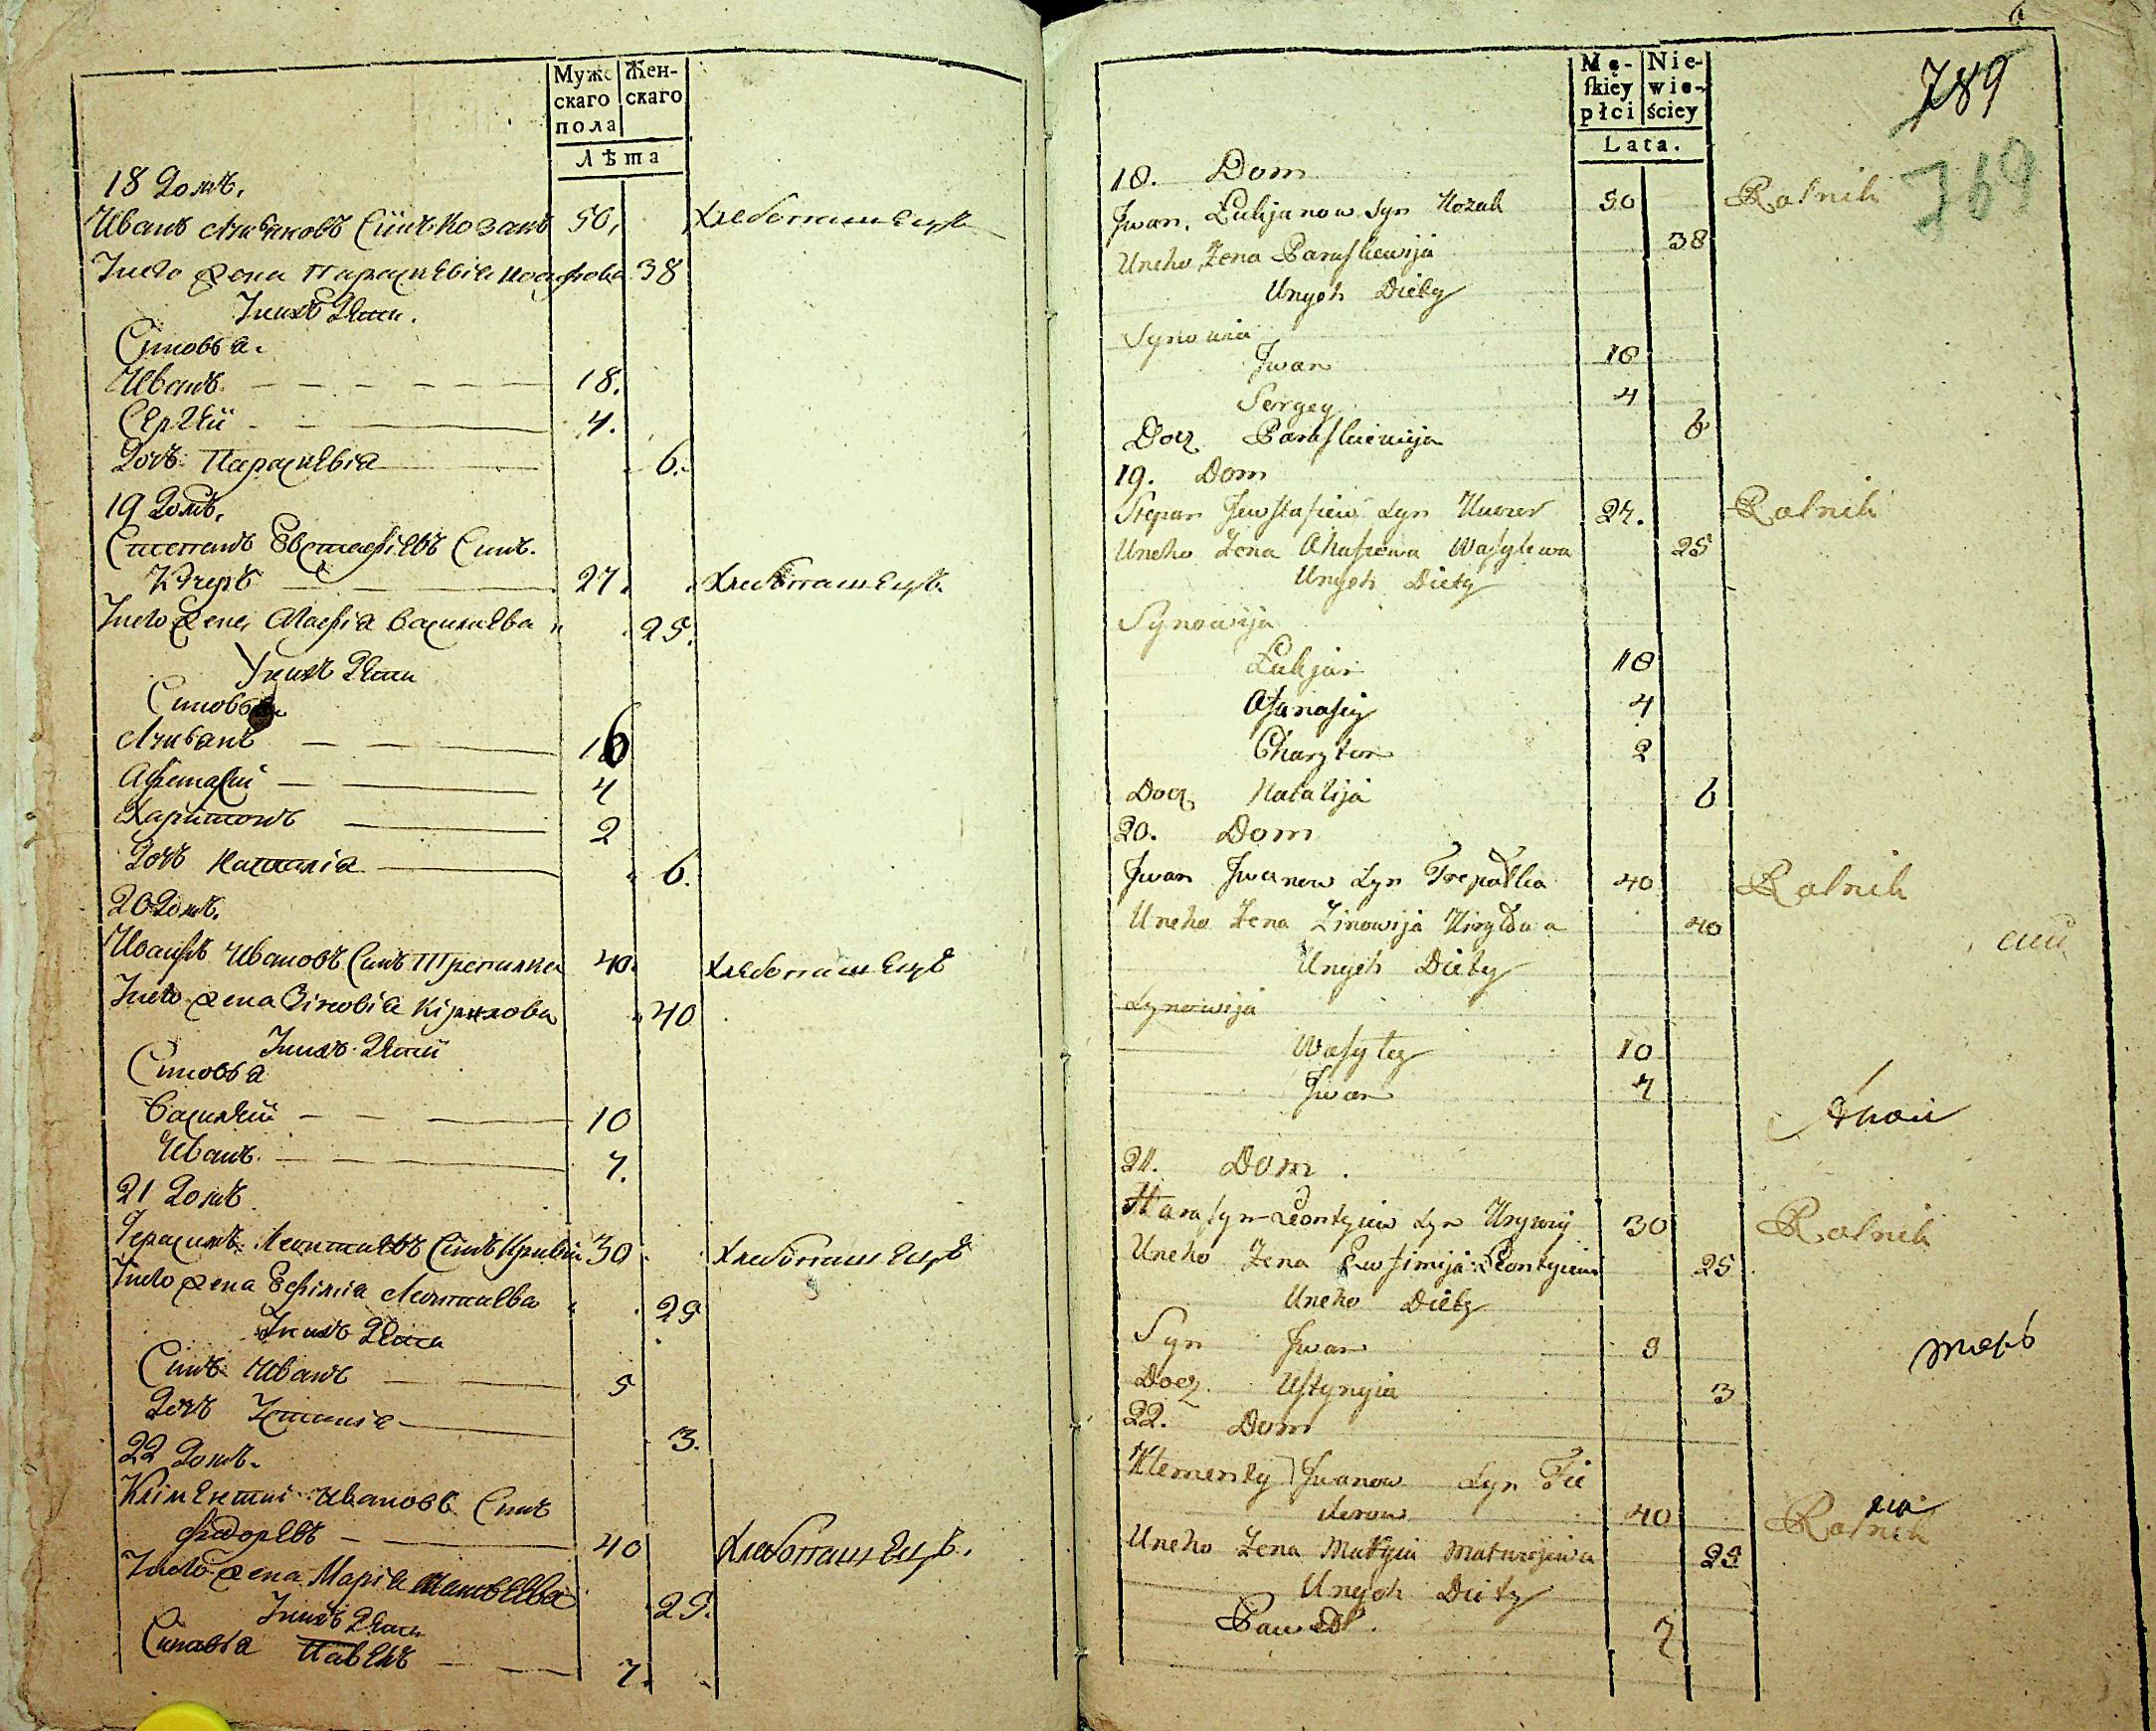 Мужскаго пола
Женскаго
Лѣта
18 Домъ.
Иванъ Лукьяновъ Синъ Козакъ 50, Хлебопашецъ
Унего Жена Параскевіа 38
Унихъ Дети.
Синовьа.
Иванъ 18.
Сергей 4.
Дочь Параскевіа 6.
19 Домъ.
Степанъ Евстафіевъ Синъ.
Кучеръ 27. Хлебопашецъ.
Унего Жена Агафіа Василева 25.
Унихъ Дети
Синовьа
Лукьанъ
Афанасий 4
Харитонъ 2
Дочь Наталіа 6.
20 Домъ.
Иванъ Ивановъ Синъ Трепалка 40. Хлебопашецъ
Унего Жена Зіновіа Кірилова 40
Унихъ Детий
Синовьа
Василий 10
Иванъ. 7.
21 Домъ
Герасимъ Леонтиевъ Синъ Кривий 30 Хлебопашецъ
Унего Жена Ефіміа Леонтиева 25
Унихъ Дети
Синъ Иванъ 5
Дочь Устиніа 3.
22 Домъ.
Кліментий Ивановъ Синъ
Федоревъ 40 Хлебопашецъ.
Унего Жена Маріа Матвеева 29.
Унихъ Дети
Синовьа Павелъ 7.
6
Mę-ſkiey płci
Nie-wie-ściey
Lata.
789
769
18. Dom
Jwan, Łukjanow syn Kozak 50 Rolnik
Uneho Żena Paraſkiewija 38
Unych Diety
Synowia
Jwan 18
Sergey 4
Docz Paraſkiewija 6
19. Dom
Stepan Jewſtafiew syn Kuczer 27. Rolnik
Uneho Żena Ahafiewa Waſylewa 25
Unych Diety
Synowija
Łukjan 10
Afanaſiy 4
Charyton 2
Docz Natalija 6
20. Dom
Jwan Jwanow syn Trepałka 40 Rolnik
Uneho Żena Zinowija Kiryłowa 40
Unych Diety
Synowija
Waſyley 10
Jwan 7
21. Dom.
Haraſym Leontyiew syn Krywiy 30 Rolnik
Uneho Żena Ewfimija Leontyiewa 25
Uneho Diety
Syn Jwan
Docz Uſtynyia 3
22. Dom
Klementy Jwanow syn Fie
derow 40 Rolnik
Uneho Żena Matwijewa 29
Unych Diety
Paweł. 7